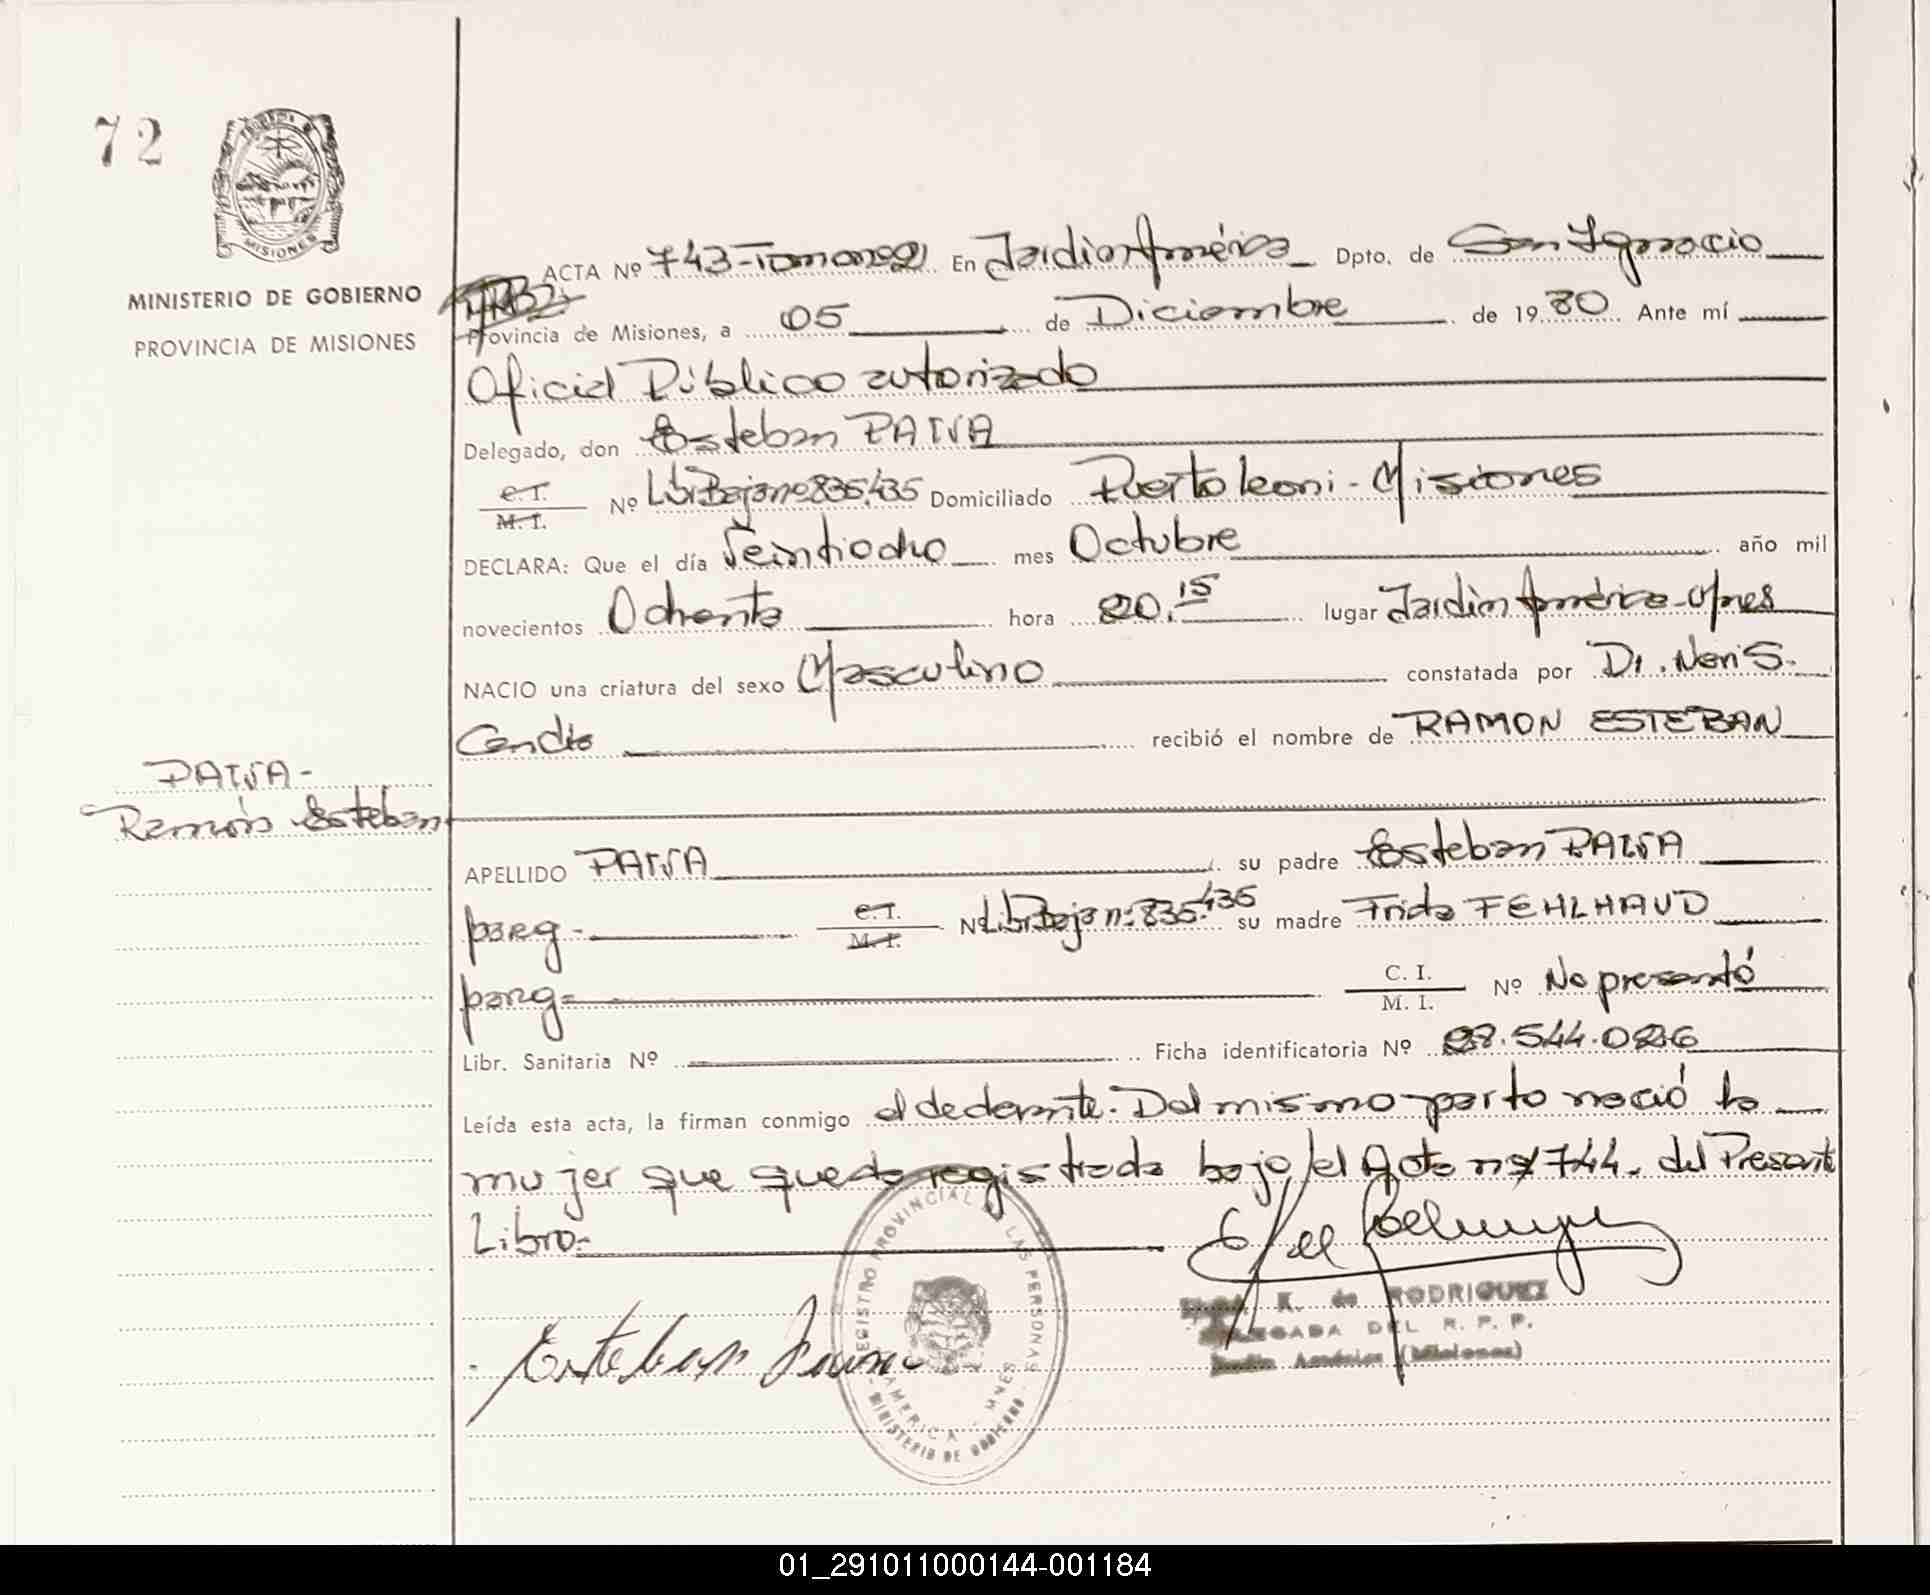 72
MISIONES
MINISTERIO DE GOBIERNO
PROVINCIA DE MISIONES
ACTA Nº 743-Tomo nº2 En Jardín América Dpto. de San Ignacio
Provincia de Misiones, a 05 de Diciembre de 1980 Ante mí
Oficial Público autorizado
Delegado, don Esteban PAIVA
C.I.
M. I.
Nº Lib. Baja nº 835.435 Domiciliado Puerto Leoni - Misiones
DECLARA: Que el día Veintiocho mes Octubre año mil
novecientos Ochenta hora 20.15 lugar Jardín América-Mnes
NACIO una criatura del sexo Masculino constatada por Dr. Neri S.
Candia recibió el nombre de RAMON ESTEBAN
PAIVA-
Ramón Esteban
APELLIDO PAIVA su padre Esteban PAIVA
parg- C.I.
M. I.
Nº Lib. Baja nº 835.435 su madre Frida FEHLHAUD
parg= C. I.
M. I.
Nº No presentó
Libr. Sanitaria Nº Ficha identificatoria Nº 28.544.026
Leída esta acta, la firman conmigo el declarante. Del mismo parto nació la
mujer que queda registrada bajo el Acta nº 744. del Presente
Libro.-
REGISTRO PROVINCIAL DE LAS PERSONAS
AMERICA - MNES
MINISTERIO DE GOBIERNO
Esteban Paiva
K. de RODRIGUEZ
DELEGADA DEL R. P. P.
Jardín América (Misiones)
01_291011000144-001184